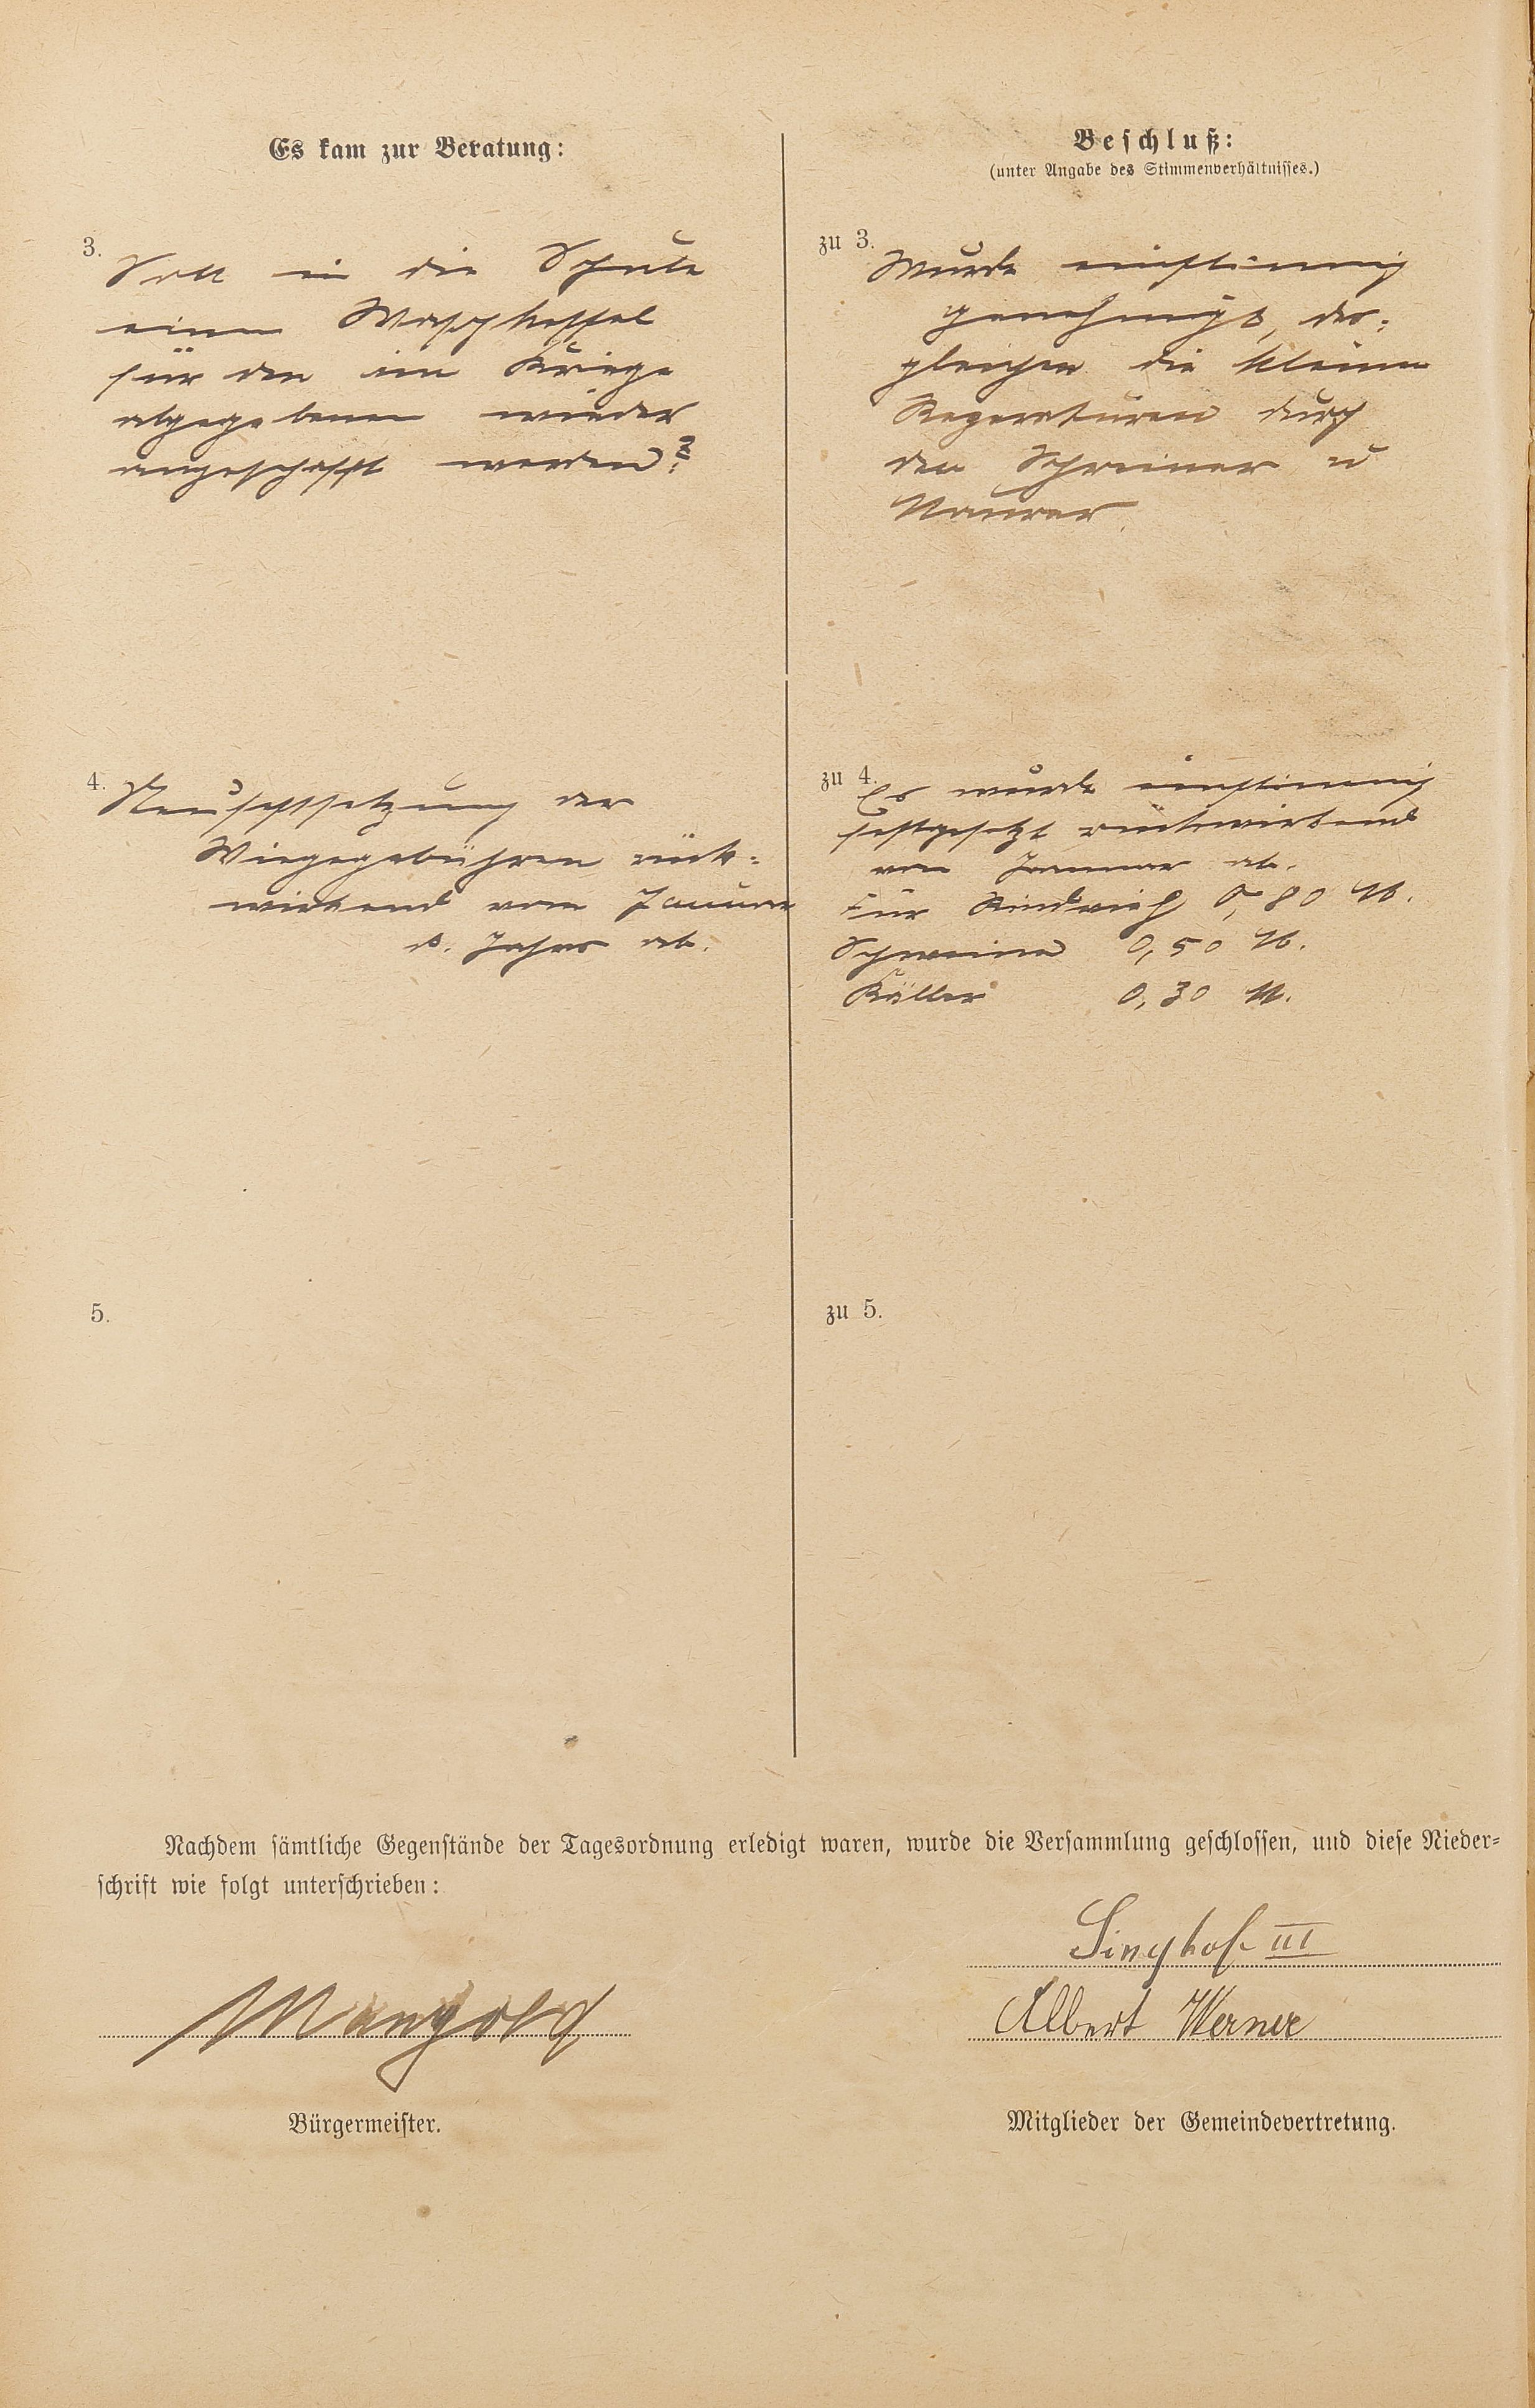 Es kam zur Beratung:
3.
Soll in die Schule
einen Waschkessel
für den im Kriege
abgegebenen wieder
angeschafft werden?
4.
Neufestsetzung der
Wiegegebühren rück-
wirkend vom Januar
d. Jahres ab.
5.
Beschluß:
(unter Angabe des Stimmenverhältnisses.)
zu 3.
Wurde einstimmig
genehmigt, des-
gleichen die kleinen
Reperaturen durch
den Schreiner u
Maurer.
zu 4.
Es wurde einstimmig
festgesetzt rückwirkend
von Januar ab.
Für Rindvieh 0,80 M.
Schweine 0,50 M.
Kälber 0,30 M.
zu 5.
Nachdem sämtliche Gegenstände der Tagesordnung erledigt waren, wurde die Versammlung geschlossen, und diese Nieder-
schrift wie folgt unterschrieben:
Singhof III
Mangold
Albert Werner
Bürgermeister.
Mitglieder der Gemeindevertretung.